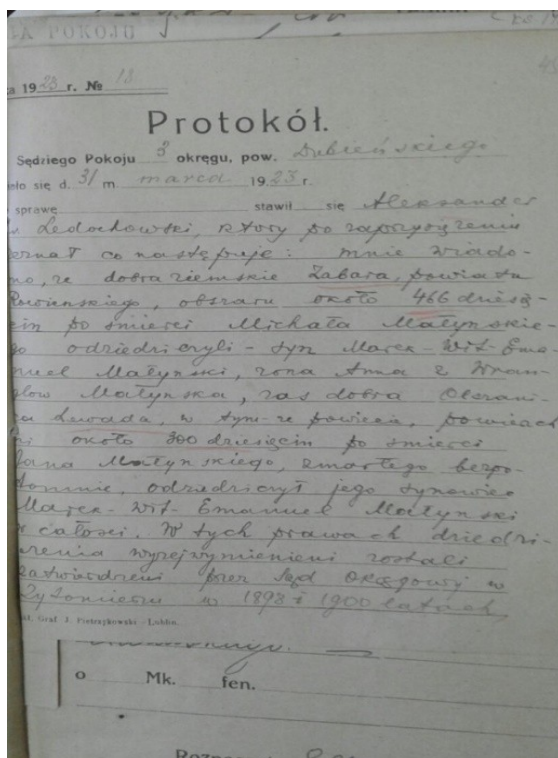 ĄA POKOJU
a 1923 r. № 18
Protokół.
Sędziego Pokoju 3 okręgu, pow. Dubieńskiego
ało się d. 31 m marca 1923 r.
sprawę stawił się Aleksander
Ledochowski, który po zaprzysiężeniu
zeznał co następuje: mnie wiado-
mo, że dobra ziemskie Żabara, powiatu
Rówieńskiego, obszaru około 466 dziesię-
cin po śmierci Michała Małyńskie-
go odziedziczyli - syn Marek-Wit-Ema-
nuel Małyński, żona Anna z Wran-
glów Małyńska, zaś dobra Olszani-
ca Lewada, w tym-że powiecie, powierzch
ni około 300 dziesięcin po śmierci
Jana Małyńskiego, zmarłego bezpo-
tomnie, odziedziczył jego synowiec
Marek-Wit-Emanuel Małyński
w całości. W tych prawach dziedzi-
czenia wyżejwymienieni zostali
zatwierdzeni przez Sąd Okręgowy w
Żytomierzu w 1898 i 1900 latach,
Graf. J. Pietrzykowski - Lublin.
o Mk. fen.